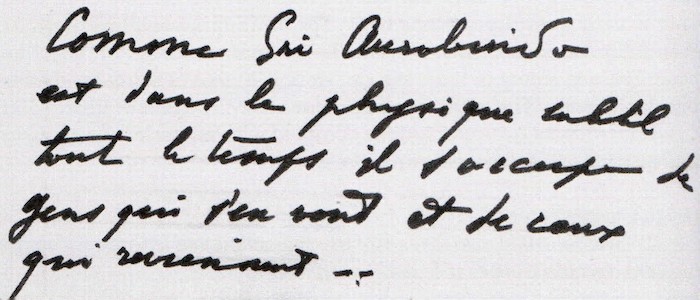 Comme Sri Aurobindo
est dans le physique subtil
tout le temps il s'occupe de
gens qui s'en vont et de ceux
qui reviennent --